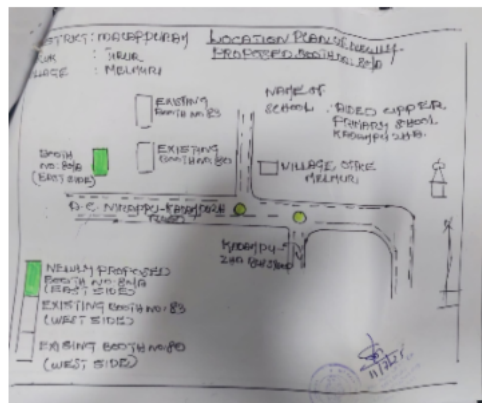 DISTRICT: MALAPPURAM
: TIRUR
VILLAGE : MELMURI
LOCATION PLAN OF NEWLY
PROPOSED BOOTH NO. 80/A
NAME OF
SCHOOL : AIDED UPPER
PRIMARY SCHOOL
EXISTING
BOOTH NO: 83
EXISTING
BOOTH NO: 80
BOOTH
NO: 80/A
(EAST SIDE)
VILLAGE OFFICE
MELMURI
ROAD
NEWLY PROPOSED
BOOTH NO: 80/A
(EAST SIDE)
EXISTING BOOTH NO: 83
(WEST SIDE)
EXISING BOOTH NO: 80
(WEST SIDE)